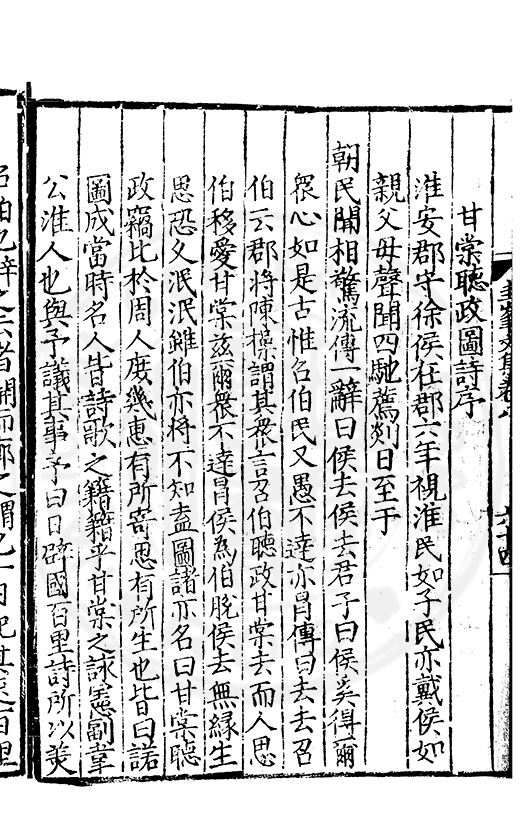 甘棠聽政圖詩序
淮安郡守徐侯在郡六年視淮民如子民亦戴侯如
親父母聲聞四馳薦剡日至于
朝民聞相驚流傳一辭曰侯去侯去君子曰侯奚得爾
衆心如是古惟召伯民又愚不達亦冒傳曰去去召
伯云郡將陳操謂其衆言召伯聽政甘棠去而人思
伯移愛甘棠茲爾衆不達冒侯為伯脫侯去無緣生
思恐久泯泯雖伯亦將不知盍圖諸亦名曰甘棠聽
政竊比於周人庶幾惠有所寄思有所生也皆曰諾
圖成當時名人皆詩歌之籍籍乎甘棠之詠憲副韋
公淮人也與予議其事予曰日辟國百里詩所以美